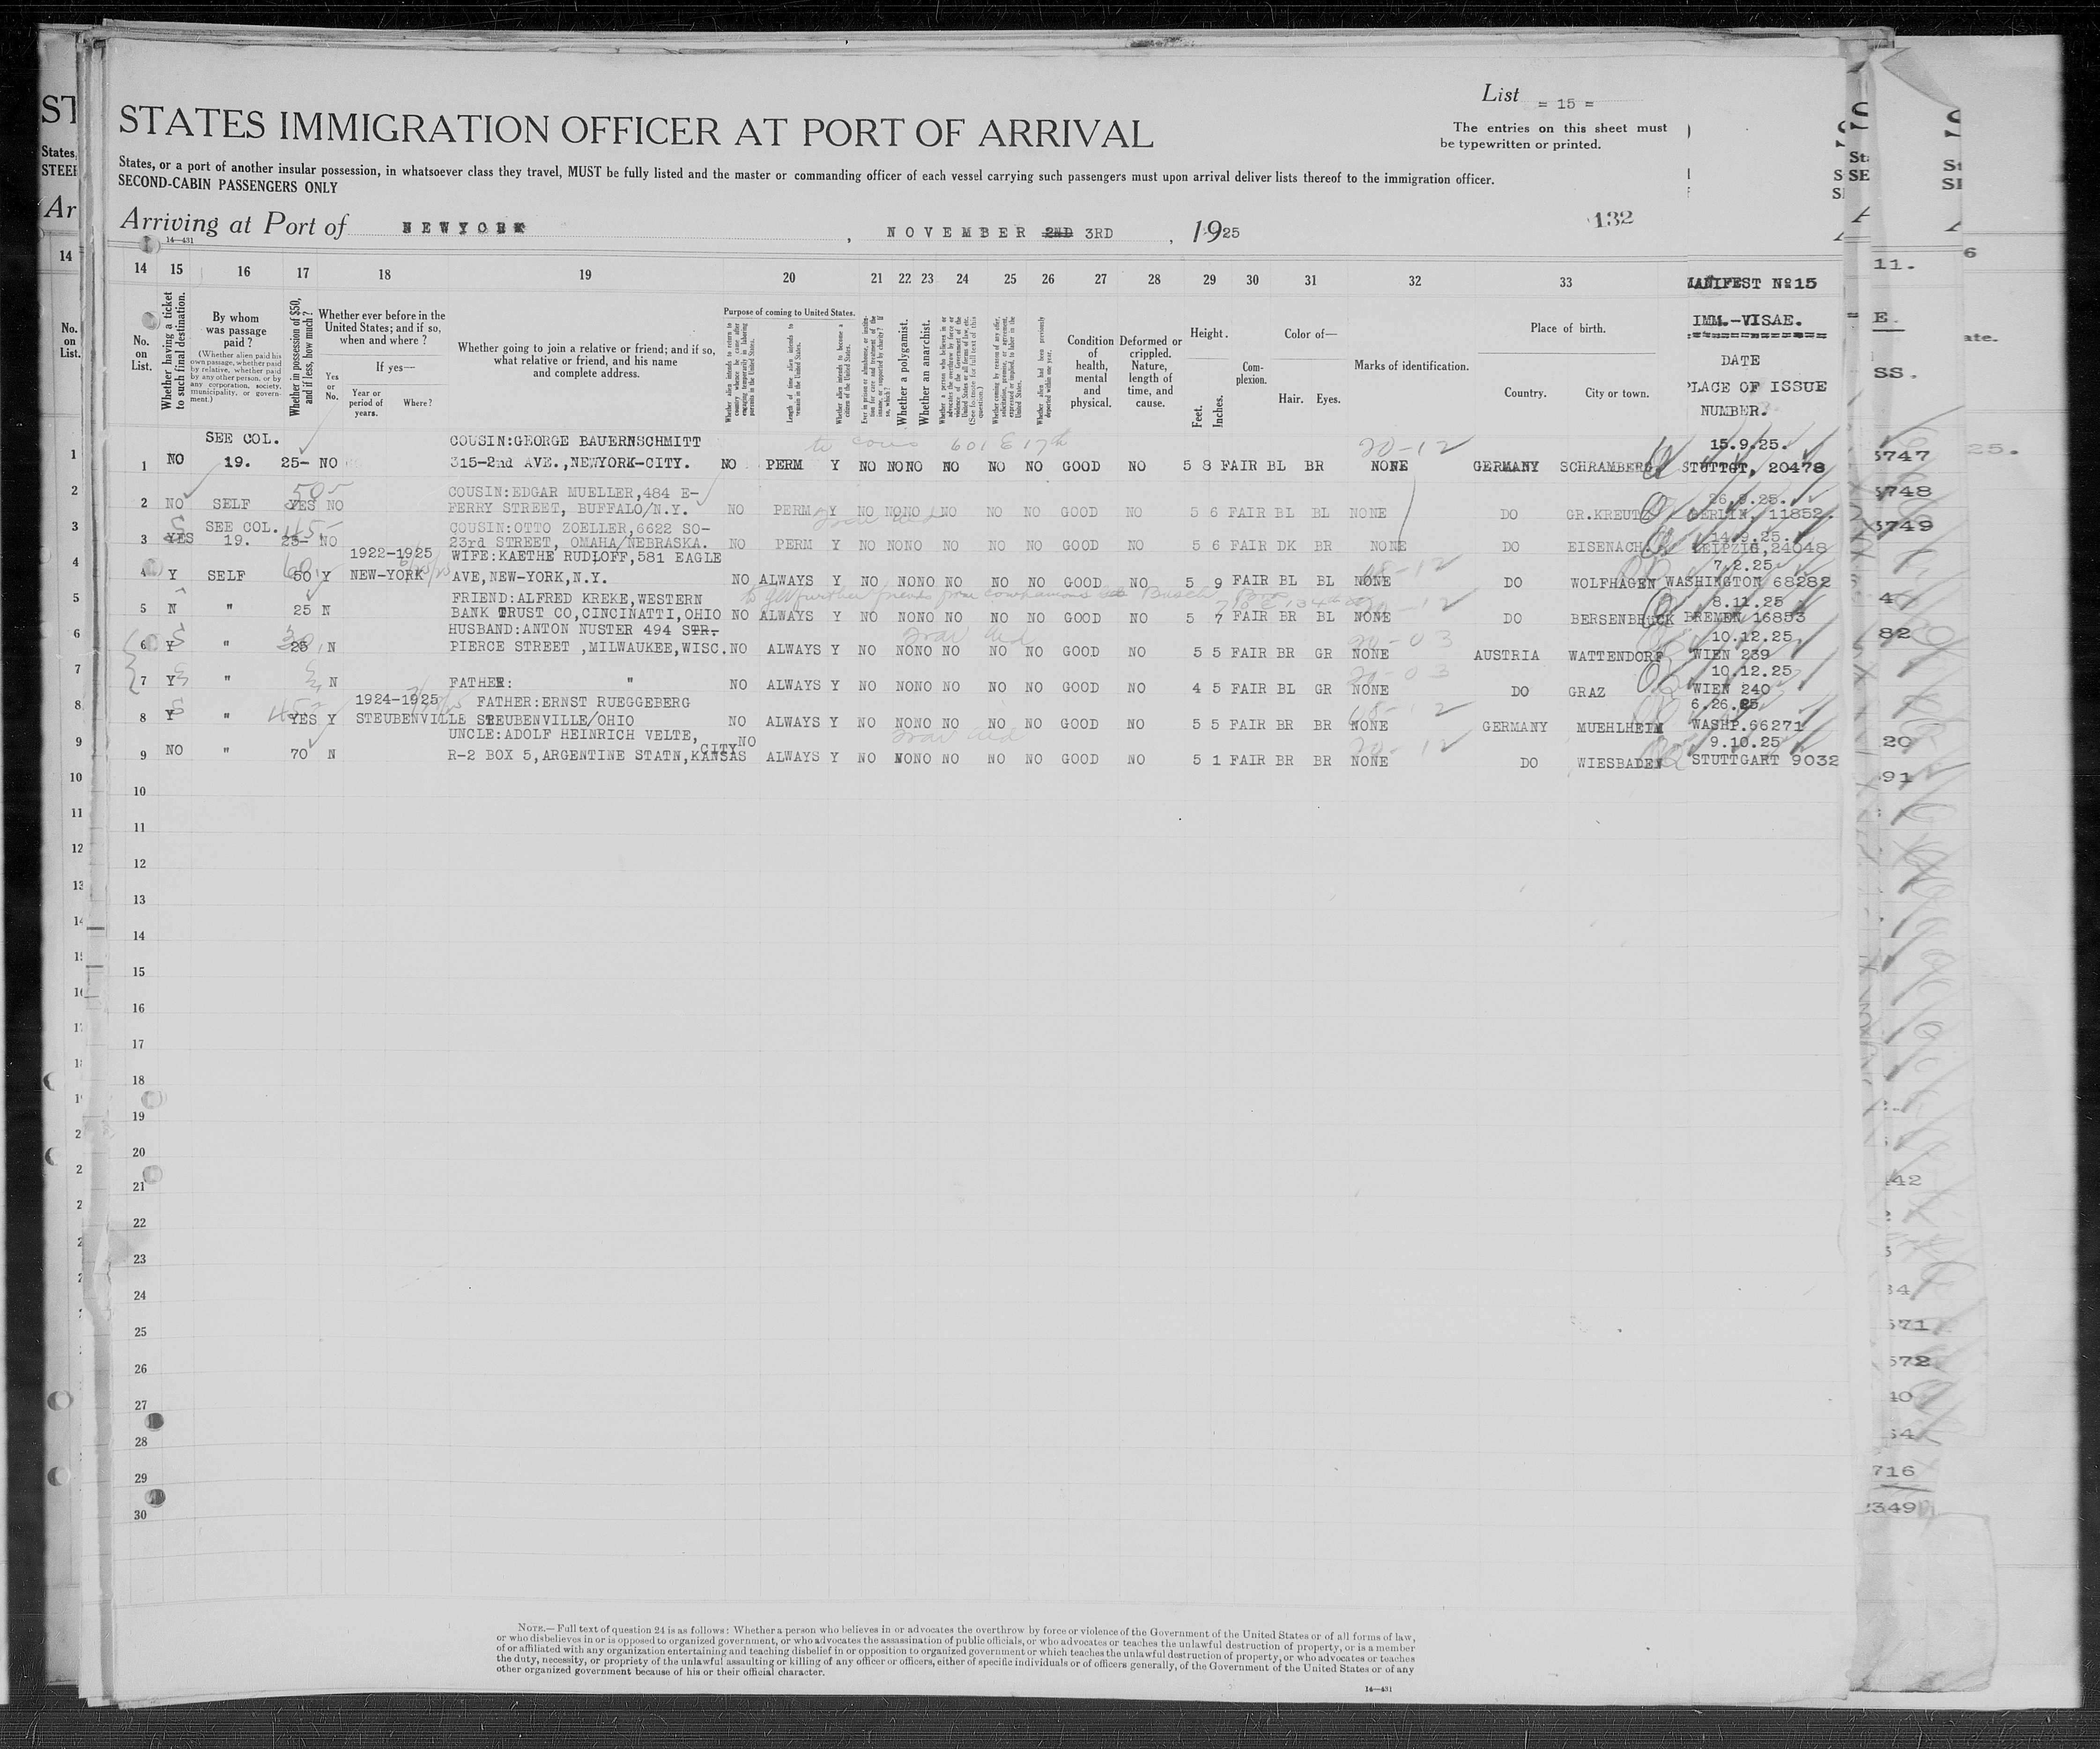 List = 15 =
STATES IMMIGRATION OFFICER AT PORT OF ARRIVAL
The entries on this sheet must
be typewritten or printed.
States, or a port of another insular possession, in whatsoever class they travel, MUST be fully listed and the master or commanding officer of each vessel carrying such passengers must upon arrival deliver lists thereof to the immigration officer.
SECOND-CABIN PASSENGERS ONLY
Arriving at Port of NEWYORK, NOVEMBER 2ND 3RD, 1925
132
14—431
14 15 16 17 18 19 20 21 22 23 24 25 26 27 28 29 30 31 32 33 MANIFEST №15
IMM.-VISAE.
DATE
PLACE OF ISSUE
NUMBER.
No. on List.
Whether having a ticket to such final destination.
By whom was passage paid?
(Whether alien paid his own passage, whether paid by relative, whether paid by any other person, or by any corporation, society, municipality, or government.)
Whether in possession of $50, and if less, how much?
Whether ever before in the United States; and if so, when and where?
Yes or No.
If yes—
Year or period of years.
Where?
Whether going to join a relative or friend; and if so, what relative or friend, and his name and complete address.
Purpose of coming to United States.
Whether alien intends to return to country whence he came after engaging temporarily in laboring pursuits in the United States.
Length of time alien intends to remain in the United States.
Whether alien intends to become a citizen of the United States.
Whether a polygamist.
Whether an anarchist.
Condition of health, mental and physical.
Deformed or crippled. Nature, length of time, and cause.
Height.
Feet. Inches.
Complexion.
Color of—
Hair. Eyes.
Marks of identification.
Place of birth.
Country. City or town.
SEE COL. COUSIN:GEORGE BAUERNSCHMITT 601 E 17th 20-12 15.9.25.
1 NO 19. 25- NO 315-2nd AVE.,NEWYORK-CITY. NO PERM Y NO NONO NO NO NO GOOD NO 5 8 FAIR BL BR NONE GERMANY SCHRAMBERG STUTTGT, 20478
50 COUSIN:EDGAR MUELLER,484 E- 26.9.25.
2 NO SELF YES NO FERRY STREET, BUFFALO/N.Y. NO PERM Y NO NONO NO NO NO GOOD NO 5 6 FAIR BL BL NONE DO GR.KREUTZ BERLIN, 11852.
SEE COL. 45- COUSIN:OTTO ZOELLER,6622 SO- 14.9.25.
3 YES 19. 25- NO 23rd STREET, OMAHA/NEBRASKA. NO PERM Y NO NONO NO NO NO GOOD NO 5 6 FAIR DK BR NONE DO EISENACH. LEIPZIG,24048
1922-1925 WIFE:KAETHE RUDLOFF,581 EAGLE 7.2.25.
4 Y SELF 50 Y NEW-YORK AVE,NEW-YORK,N.Y. NO ALWAYS Y NO NONO NO NO NO GOOD NO 5 9 FAIR BL BL NONE DO WOLFHAGEN WASHINGTON 68282
FRIEND:ALFRED KREKE,WESTERN 8.11.25
5 N " 25 N BANK TRUST CO,CINCINATTI,OHIO NO ALWAYS Y NO NONO NO NO NO GOOD NO 5 7 FAIR BR BL NONE DO BERSENBRUCK BREMEN 16853
HUSBAND:ANTON NUSTER 494 STR. 20-03 10.12.25
6 Y " 25 N PIERCE STREET ,MILWAUKEE,WISC. NO ALWAYS Y NO NONO NO NO NO GOOD NO 5 5 FAIR BR GR NONE AUSTRIA WATTENDORF WIEN 239
20-03 10.12.25
7 Y N FATHER: " NO ALWAYS Y NO NONO NO NO NO GOOD NO 4 5 FAIR BL GR NONE DO GRAZ WIEN 240
1924-1925 FATHER:ERNST RUEGGEBERG 6.26.25
8 Y " YES Y STEUBENVILLE STEUBENVILLE/OHIO NO ALWAYS Y NO NONO NO NO NO GOOD NO 5 5 FAIR BR BR NONE GERMANY MUEHLHEIM WASHP.66271
UNCLE:ADOLF HEINRICH VELTE, 20-12 9.10.25
9 NO " 70 N R-2 BOX 5,ARGENTINE STATN,KANSAS CITY NO ALWAYS Y NO NONO NO NO NO GOOD NO 5 1 FAIR BR BR NONE DO WIESBADEN STUTTGART 9032
10
11
12
13
14
15
16
17
18
19
20
21
22
23
24
25
26
27
28
29
30
NOTE.—Full text of question 24 is as follows: Whether a person who believes in or advocates the overthrow by force or violence of the Government of the United States or of all forms of law,
or who disbelieves in or is opposed to organized government, or who advocates the assassination of public officials, or who advocates or teaches the unlawful destruction of property, or is a member
of or affiliated with any organization entertaining and teaching disbelief in or opposition to organized government or which teaches the unlawful destruction of property, or who advocates or teaches
the duty, necessity, or propriety of the unlawful assaulting or killing of any officer or officers, either of specific individuals or of officers generally, of the Government of the United States or of any
other organized government because of his or their official character.
14—431